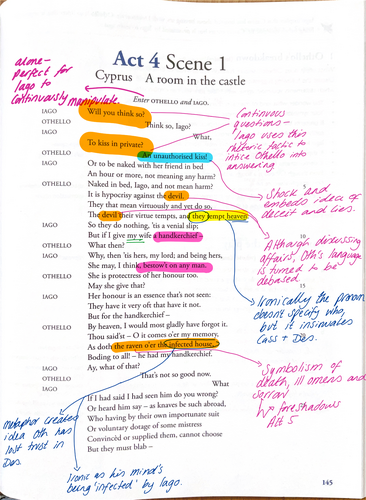 Act 4 Scene 1
Cyprus A room in the castle
alone-
perfect for
Iago to
continuously manipulate.
Enter OTHELLO and IAGO.
IAGO Will you think so?
OTHELLO Think so, Iago?
IAGO What,
To kiss in private?
OTHELLO An unauthorised kiss!
IAGO Or to be naked with her friend in bed
An hour or more, not meaning any harm?
OTHELLO Naked in bed, Iago, and not mean harm?
It is hypocrisy against the devil.
They that mean virtuously and yet do so,
The devil their virtue tempts, and they tempt heaven.
IAGO So they do nothing, 'tis a venial slip;
But if I give my wife a handkerchief –
OTHELLO What then?
IAGO Why, then 'tis hers, my lord; and being hers,
She may, I think, bestow't on any man.
OTHELLO She is protectress of her honour too.
May she give that?
IAGO Her honour is an essence that's not seen:
They have it very oft that have it not.
But for the handkerchief –
OTHELLO By heaven, I would most gladly have forgot it.
Thou said'st – O it comes o'er my memory,
As doth the raven o'er the infected house,
Boding to all! – he had my handkerchief.
IAGO Ay, what of that?
OTHELLO That's not so good now.
IAGO What
If I had said I had seen him do you wrong?
Or heard him say – as knaves be such abroad,
Who having by their own importunate suit
Or voluntary dotage of some mistress
Convincèd or supplied them, cannot choose
But they must blab –
10
15
Continuous
questions-
Iago uses this
rhetoric tactic to
intice Othello into
answering
Shock and
embeds idea of
deceit and lies.
Although discussing
affairs, Oth's language
is turned to be
debased.
Ironically the pronoun
doesn't specify who,
but it insinuates
Cass + Des.
Symbolism of
death, ill omens and
sorrow
↳ foreshadows
Act 5
metaphor creates
idea Oth has
lost trust in
Des.
Ironic as his mind's
being 'infected' by Iago.
145